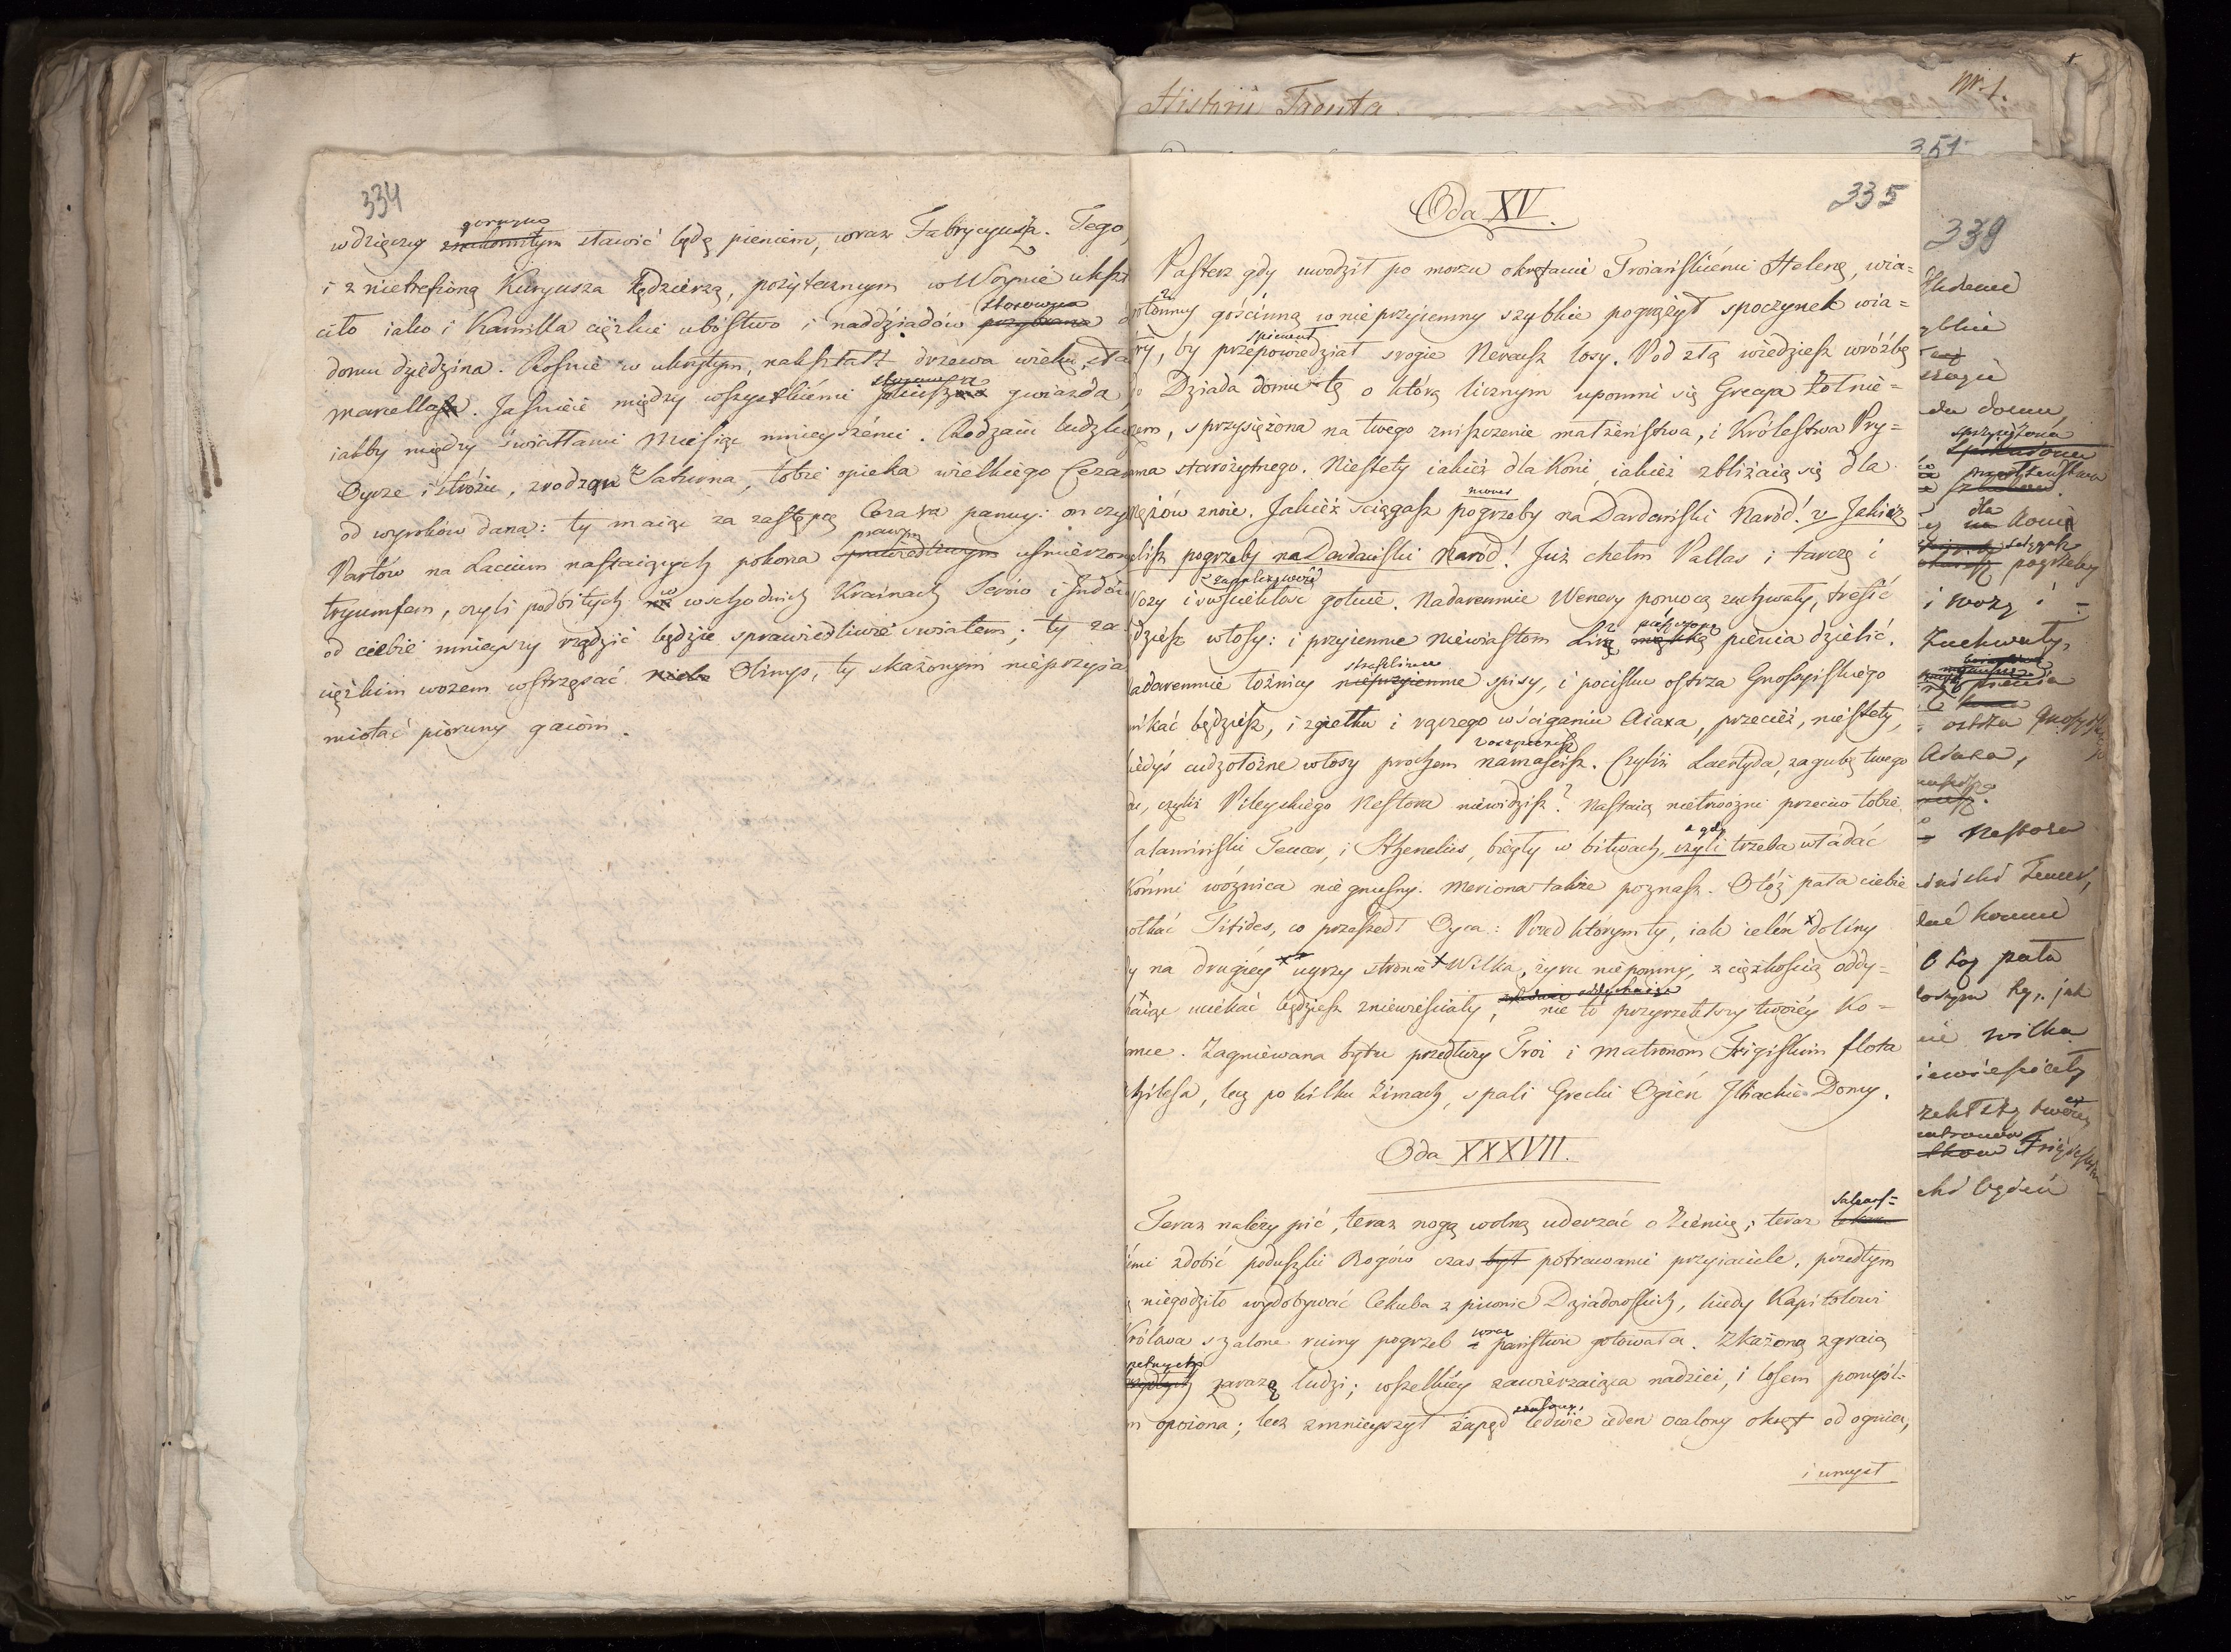 334
gorszno
wdzięczy znakomitym sławić będę pieniem, wraz Fabrycyusza. Tego,
i z nietrefioną Kuryusza kędzierzą, pożytecznym w Woynie ukszt
ciło iako i Kamilla ciężkie ubóstwo i naddziadów przybrana
stosowna
domu dziedzina. Rośnie w ukrytym, nakształt drzewa wieku, sła
Marcella. Jaśnieie między wszystkiémi Juliuszowa gwiazda
iakby między światłami Miesiąc mnieyszémi. Rodzaiu ludzk
Oycze i stróżu, zrodzon z Saturna, tobie opieka wielkiego Ceza
od wyroków dana: ty maiąc za zastępcę Cezara panuy: on czy
prawym
Partów na Lacium nastaiących pokona sprawiedliwym uśmierzo
tryumfem, czyli podbitych w wschodnich Krainach Serów i Indów
od ciebie mnieyszy rządzić będzie sprawiedliwie światem; ty za
ciężkim wozem wstrząsać nieba Olimp, ty skażonym nieprzyia
miotać pioruny gaiom.
Historii Tacyta.
Nr. 1.
351
335
Oda XV.
Pasterz gdy uwodził po morzu okrętami Troiańskiémi Helenę, wia=
ołomny gościnną w nieprzyiemny szybkie pogrążył spoczynek wia=
śpiewał
ry, by przepowiedział srogie Nereusz losy. Pod złą wiedziesz wróżbą
o Dziada domu tę o którą licznym upomni się Grecya żołnie=
rzem, sprzysiężona na twego zniszczenie małżeństwa, i Królestwa Pry=
ama starożytnego. Niestety iakiéż dla Koni, iakiéż zbliżaią się dla
Mężów znoie. Jakiéż ściągasz pogrzeby na Dardański Naród! Jakiéż
elisz pogrzeby na Dardański Naród! Już chełm Pallas i tarczę i
zapalczywość
Wozy i wściekłość gotuie. Nadaremnie Wenery pomocą zuchwały, trefić
dziesz włosy: i przyiemne niewiastom Lirą miękką pienia dzielić.
straszliwe
adaremnie łożnicy nieprzyienne spisy, i pocisku ostrza Gnossyiskiego
nikać będziesz, i zgiełku i rączego w ściganiu Aiaxa, przecież, niestety,
iedyś cudzołóżne włosy prochem namaścisz. Czyliż Laertyda, zagubę twego
du, czyliż Pileyskiego Nestora niewidzisz? Nastaią nietrwożni przeciw tobie
a gdy
alamiński Teucer, i Sthenelus, biegły w bitwach, czyli trzeba władać
Końmi woźnica nie gnusny. Meriona także poznasz. Otóż pała ciebie
otkać Titides, co przeszedł Oyca: Przed którym ty, iak ieleń doliny
y na drugiéy uyrzy stronie Wilka, żyru niepomny, z ciężkością oddy=
aiąc uciekać będziesz zniewieściały, nie to przyrzekłszy twoiéy Ko=
mce. Zagniewana bytu przedłuży Troi i matronom Frigiskim flota
hillesa, lecz po kilku Zimach, spali Grecki Ogień Jliackie Domy.
Oda XXXVII.
Teraz należy pić, teraz nogą wolną uderzać o Ziemię; teraz
émi zdobić poduszki Bogów czas był potrawami przyiaciele, przedtym
niegodziło wydobywać Cekuba z piwnic Dziadowskich, kiedy Kapitolowi
Królowa szalone ruiny pogrzeb państwu gotowała. Zkażoną zgraią
zarazą ludzi; wszelkiéy zawierzaiąca nadziei, i losem pomyśl=
m opoiona; lecz zmnieyszył zapęd ledwie ieden ocalony okręt od ognia,
i umysł
339
da domu,
sprzysiężona
dla Koni
pogrzeby
i wozy i
Zuchwały,
ostrza
Aiaxa,
Nestora
Teucer,
Otoż pała
ty, jak
wilka